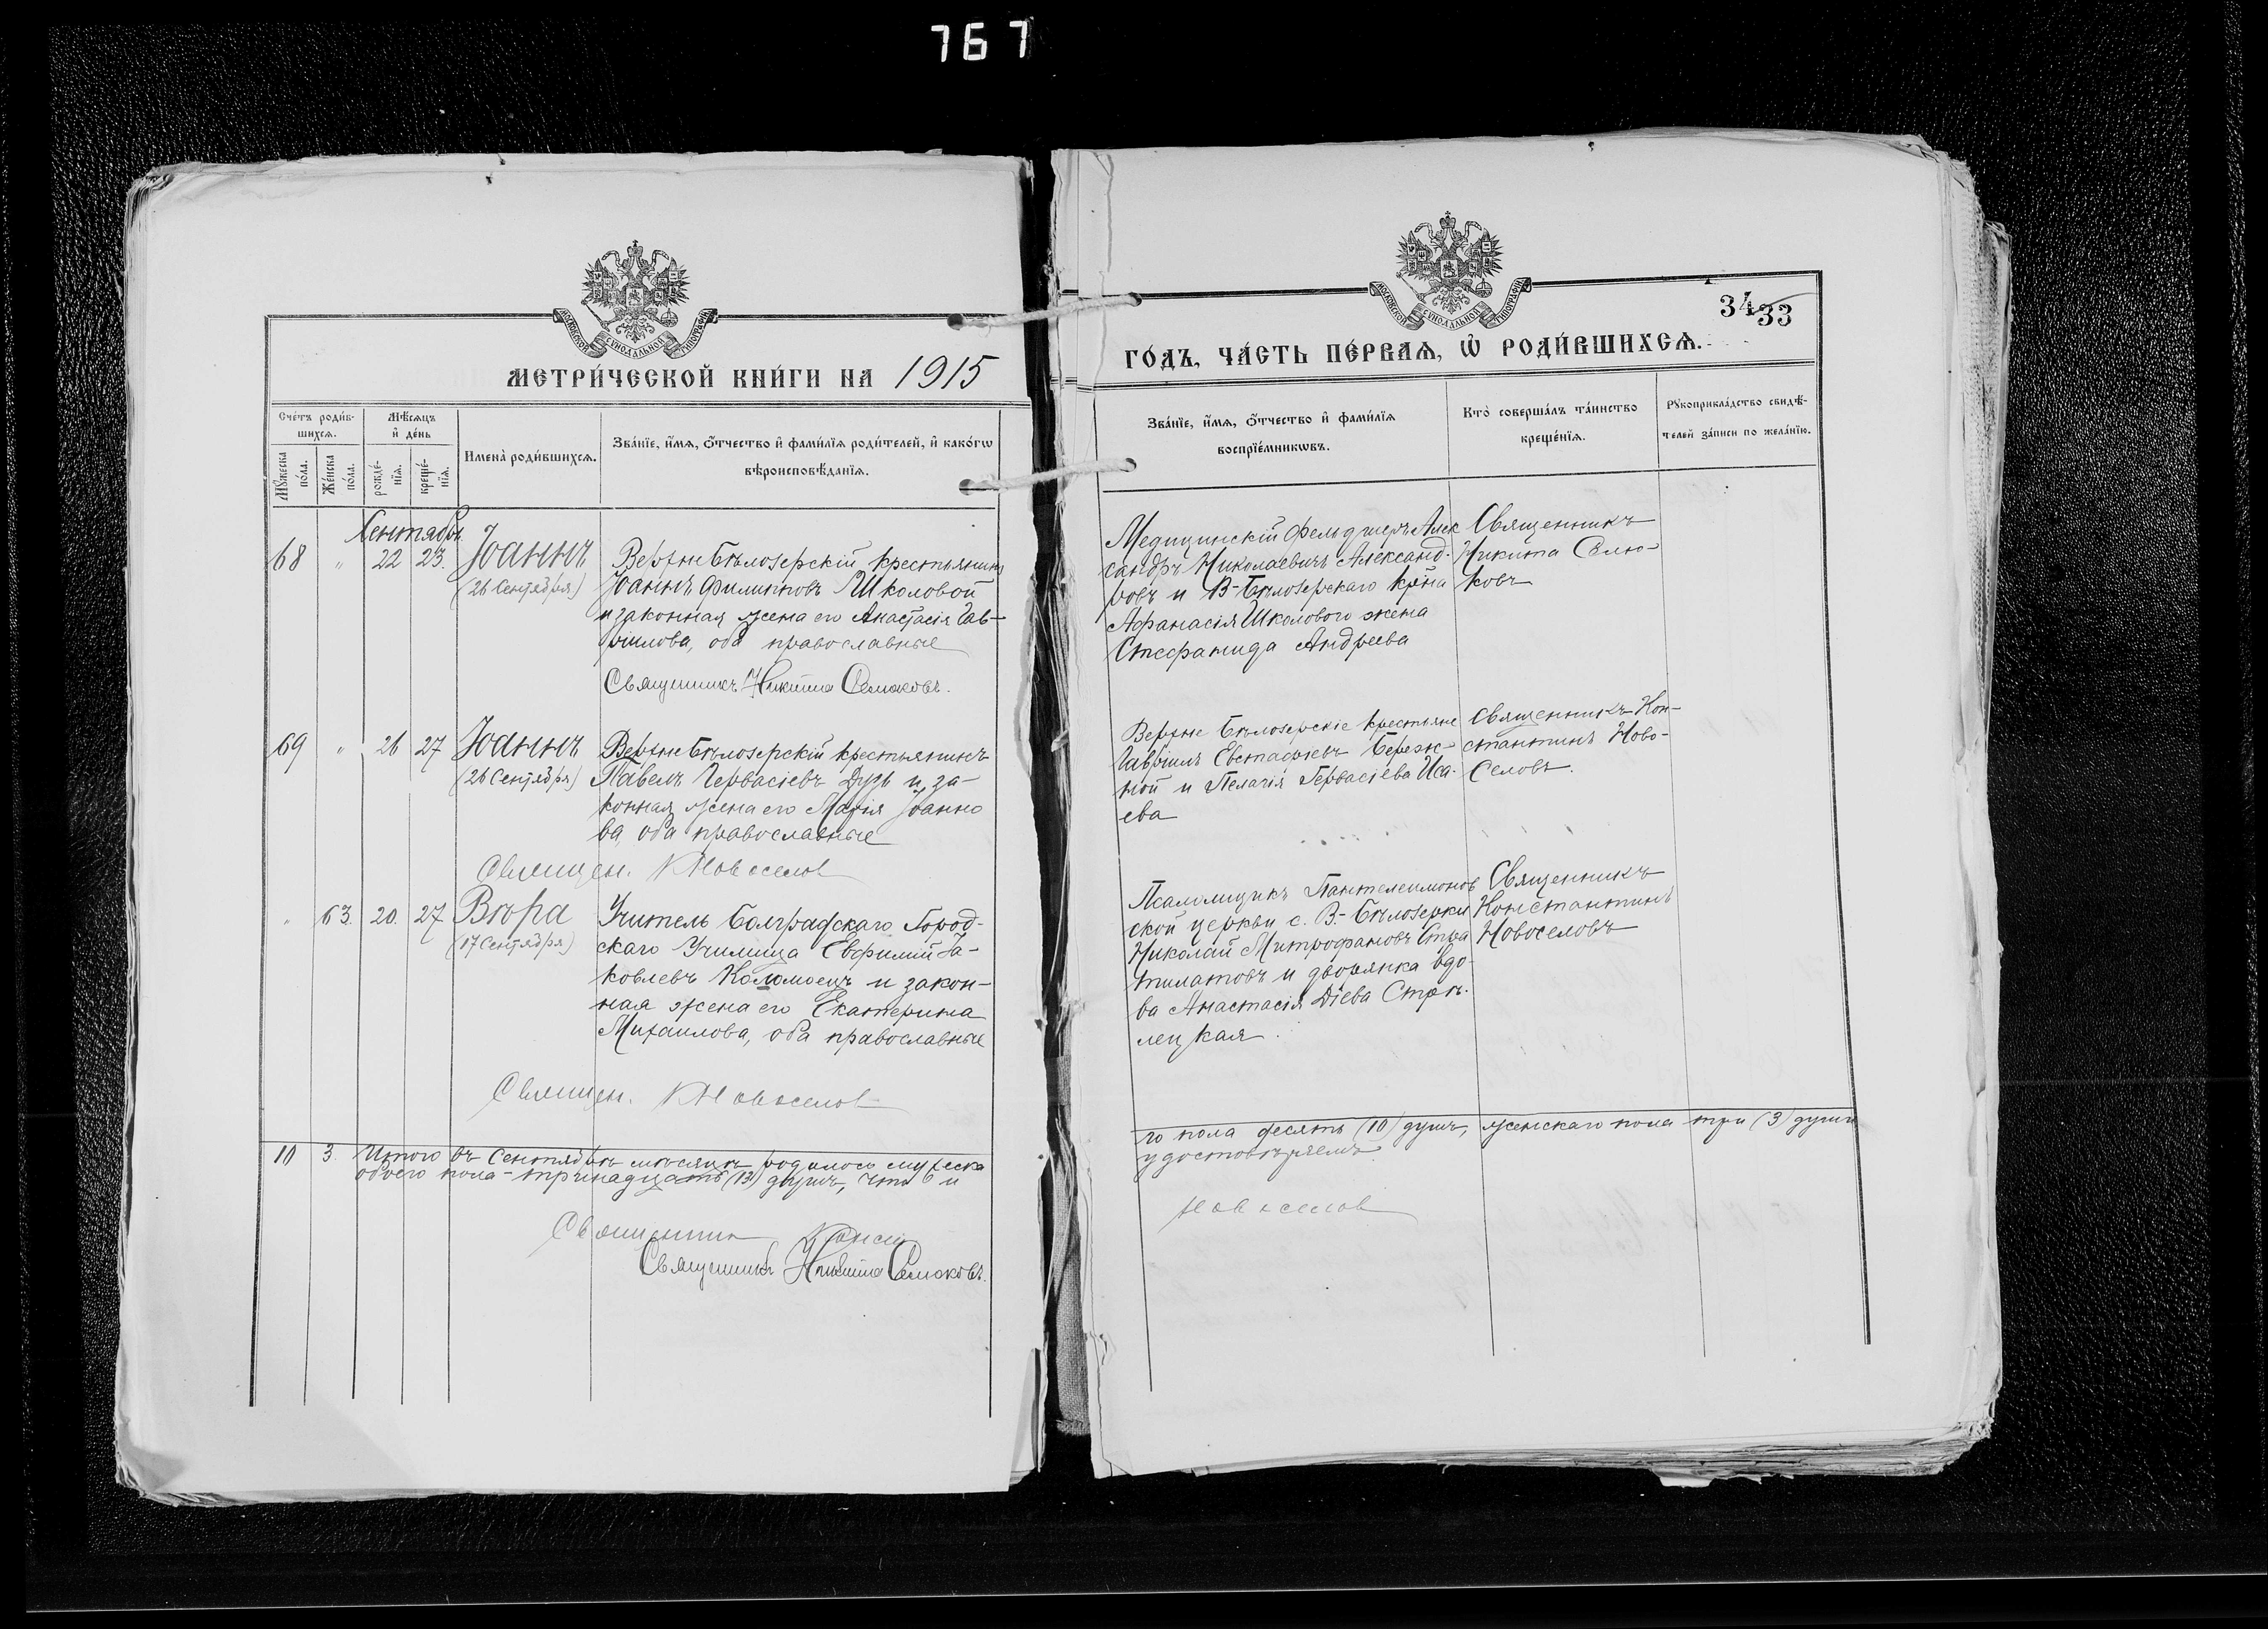 767
МОСКОВСКОЙ СѴНОДАЛЬНОЙ ТИПОГРАФІИ
МЕТРИ́ЧЕСКОЙ КНИ́ГИ НА 1915
Счéтъ роди́в-
шихся.
Мѣ́сяцъ
и҆ дéнь
Мꙋ́жеска
пóла.
Жéнска
пóла.
рождé-
нїя.
крещé-
нїя.
И҆мена̀ роди́вшихся.
Звáнїе, и҆́мя, ѻ҆́тчество и҆ фами́лїя роди́телей, и҆ какóгѡ
вѣроисповѣ́данїя.
Сентябрь
68 " 22 23. Іоаннъ
(26 Сентября)
Верхне Бѣлозерскій крестьянинъ
Іоаннъ Филипповъ Школовой
и законная жена его Анастасія Гав-
риилова, оба православные
Священникъ Никита
69 " 26 27 Іоаннъ
(26 Сентября)
Верхне Бѣлозерскій крестьянинъ
Павелъ Гервасіевъ Дузь и за-
конная жена его Марія Іоанно
ва, оба православные
Священ. К Новоселов
" 63. 20. 27 Вѣра
(17 Сентября)
Учитель Болградскаго Город-
скаго Училища Евфимій Іа-
ковлевъ Коломоецъ и закон-
ная жена его Екатерина
Михаилова, оба православные
Священ. К Новоселов
10 3. Итого въ Сентябрѣ мѣсяцѣ родилось мужеска
обоего пола - тринадцать (13) душъ, что и
Священник Конст
Священникъ Никита
МОСКОВСКОЙ СѴНОДАЛЬНОЙ ТИПОГРАФІИ
34 33
ГÓДЪ, ЧÁСТЬ ПÉРВАЯ, Ѽ РОДИ́ВШИХСЯ.
Звáнїе, и҆́мя, ѻ҆́тчество и҆ фами́лїя
воспрїéмникѡвъ.
Кто̀ совершáлъ тáинство
крещéнїя.
Рꙋкоприклáдство свидѣ́-
телей зáписи по желáнїю.
Медицинскій фельдшеръ Алек
сандръ Николаевичъ Александ-
ровъ и В-Бѣлозерскаго кр-на
Афанасія Школового жена
Стефанида Андреева
Священникъ
Никита
ковъ
Верхне Бѣлозерскіе крестьяне
Гавріилъ Евстафіевъ Береж-
ной и Пелагія Гервасіева Иса-
ева
Священникъ Кон-
стантинъ Ново-
селовъ.
Псаломщикъ Пантелеимонов
ской церкви с. В.-Бѣлозерки
Николай Митрофановъ Стра
тилатовъ и дворянка вдо-
ва Анастасія Діева Стрѣ-
лецкая.
Священникъ
Константинъ
Новоселовъ
го пола десять (10) душъ, женскаго пола три (3) души
удостовѣряемъ
Новоселов